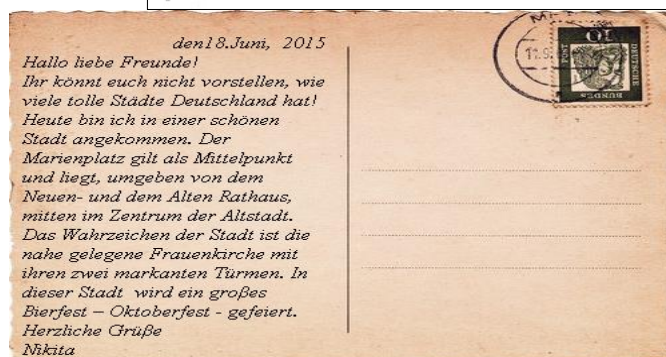 den18.Juni, 2015
Hallo liebe Freunde!
Ihr könnt euch nicht vorstellen, wie
viele tolle Städte Deutschland hat!
Heute bin ich in einer schönen
Stadt angekommen. Der
Marienplatz gilt als Mittelpunkt
und liegt, umgeben von dem
Neuen- und dem Alten Rathaus,
mitten im Zentrum der Altstadt.
Das Wahrzeichen der Stadt ist die
nahe gelegene Frauenkirche mit
ihren zwei markanten Türmen. In
dieser Stadt wird ein großes
Bierfest – Oktoberfest - gefeiert.
Herzliche Grüße
Nikita
11.9.
10
DEUTSCHE
BUNDES
POST